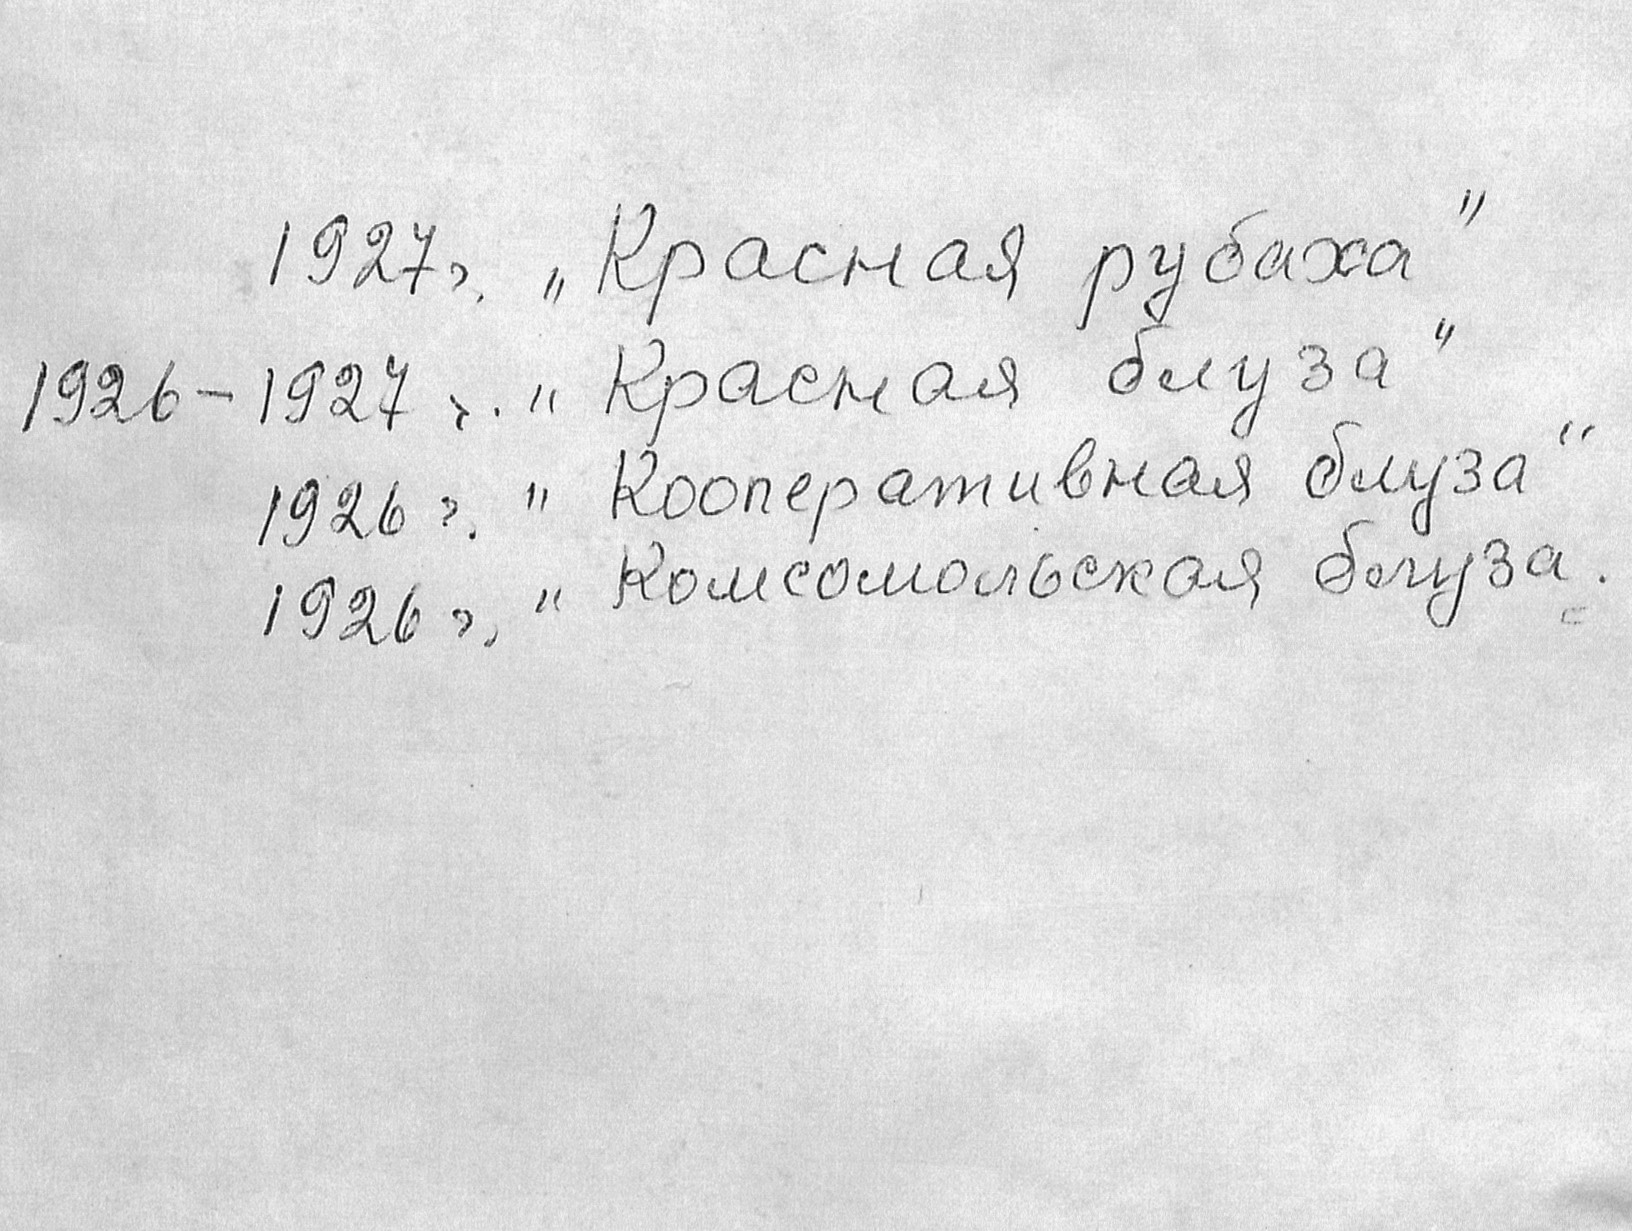 1927г. „Красная рубаха"
1926-1927 г. "Красная блуза"
1926 г. "Кооперативная блуза"
1926 г. "Комсомольская блуза.